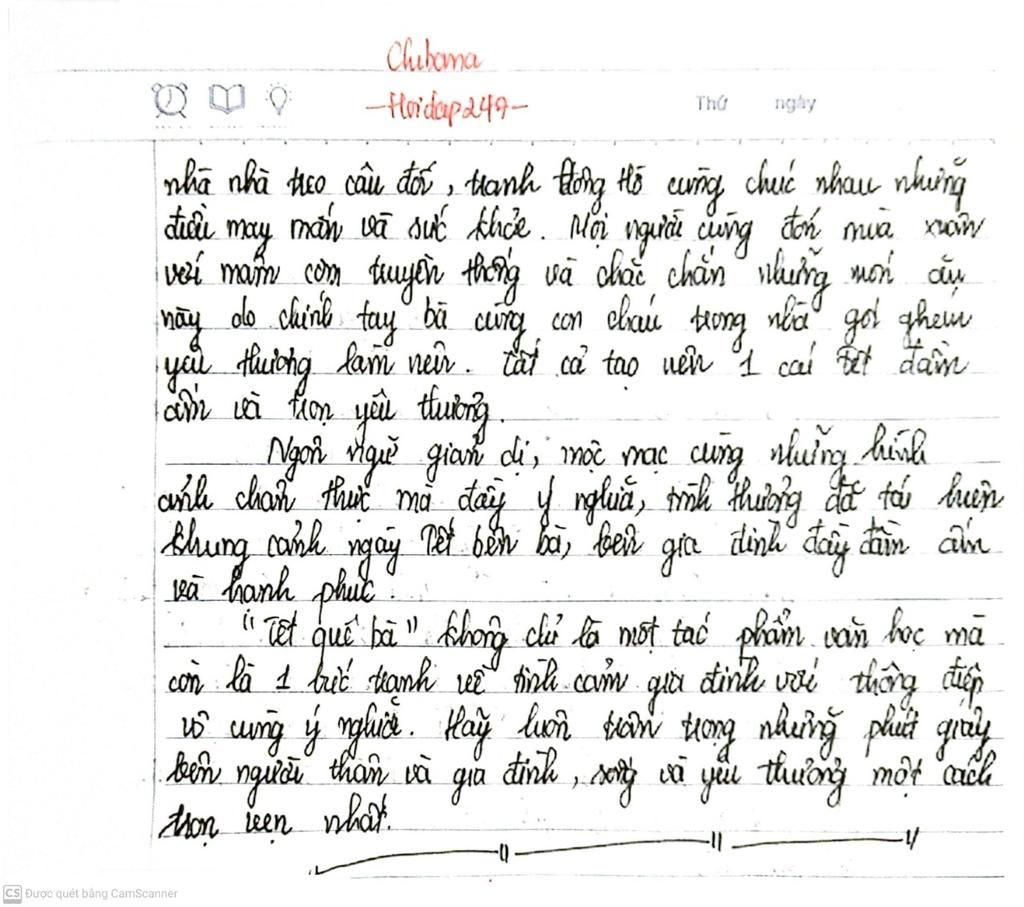 Chibana
-Hoidap247-
Thứ ngày
nhà nhà treo câu đối, tranh Đông Hồ cùng chúc nhau những
điều may mắn và sức khỏe. Mọi người cùng đón mùa xuân
với mâm cơm truyền thống và chắc chắn những món ăn
này do chính tay bà cùng con cháu trong nhà gói ghém
yêu thương làm nên. Tất cả tạo nên 1 cái Tết đầm
ấm và trọn yêu thương.
Ngôn ngữ giản dị, mộc mạc cùng những hình
ảnh chân thực mà đầy ý nghĩa, tình thương đã tái hiện
khung cảnh ngày Tết bên bà, bên gia đình đầy đầm ấm
và hạnh phúc.
"Tết quê bà" không chỉ là một tác phẩm văn học mà
còn là 1 bức tranh về tình cảm gia đình với thông điệp
vô cùng ý nghĩa. Hãy luôn trân trọng những phút giây
bên người thân và gia đình, sống và yêu thương một cách
trọn vẹn nhất.
CS Được quét bằng CamScanner